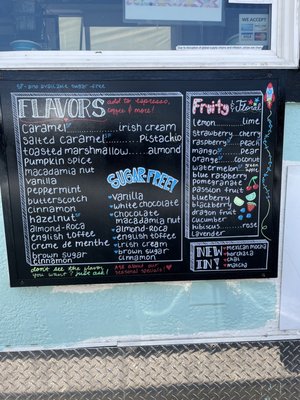 SF = also available sugar-free
FLAVORS
add to espresso,
coffee & more!
Caramel SF ........ irish cream
salted caramel SF ..... pistachio
toasted marshmallow ..... almond
Pumpkin spice
macadamia nut
vanilla
peppermint
butterscotch
cinnamon
hazelnut SF
almond-Roca
english toffee
creme de menthe
brown sugar
cinnamon
don't see the flavor
you want? just ask!
SUGAR-FREE!
vanilla
white chocolate
chocolate
macadamia nut
almond-Roca
english toffee
irish cream
brown sugar
cinnamon
Ask about our
seasonal specials!
Fruity &
lemon ........ lime
strawberry .. cherry
raspberry SF .... peach
mango SF ...... pear
orange SF ... coconut
watermelon
blue raspberry
pomegranate
passion fruit
blueberry
blackberry
dragon fruit
cucumber
hibiscus ....... rose
lavender
green tea
NEW
IN!
mexican mocha
horchata
chai
matcha
ACCEPTED HERE